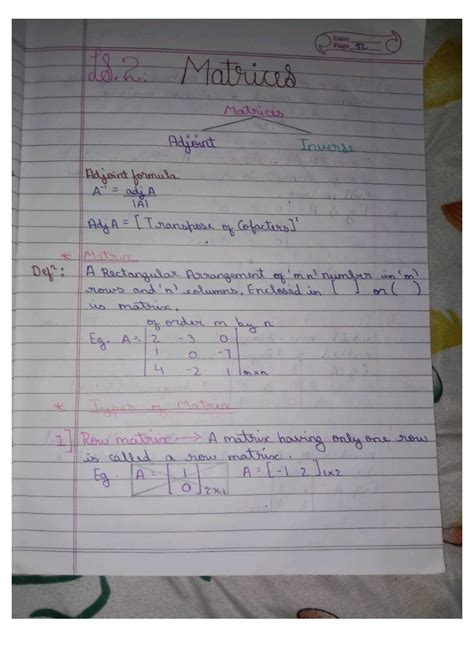 Date
Page 92
LS.2. Matrices
Matrices
Adjoint Inverse
Adjoint formula
A⁻¹ = adj A
|A|
Adj A = [Transpose of Cofactors]'
* Matrix
Defⁿ: A Rectangular Arrangement of 'mn' number in 'm'
rows and 'n' columns, Enclosed in [ ] or ( )
is matrix.
of order m by n
Eg. A = 2 -3 0
1 0 -7
4 -2 1 m×n
* Types of Matrix
1] Row matrix → A matrix having only one row
is called a row matrix.
Eg. A = 1 A = [-1 2]1×2
0 2×1